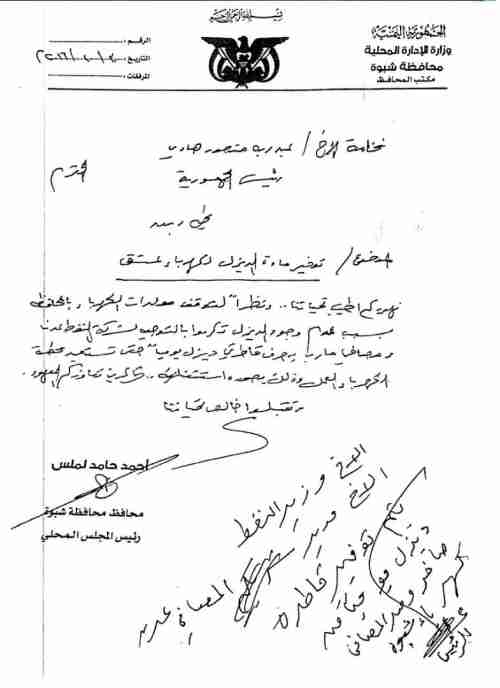 بسم الله الرحمن الرحيم
الجمهورية اليمنية
وزارة الإدارة المحلية
محافظة شبوة
مكتب المحافظ
الرقم:
التاريخ:
المرفقات:
فخامة الأخ / عبدربه منصور هادي
رئيس الجمهورية المحترم
تحية وبعد
الموضوع / توفير مادة الديزل لكهرباء
نهديكم أطيب تحياتنا.. ونظراً لتوقف مولدات الكهرباء بالمحافظة
بسبب عدم وجود الديزل تكرموا بالتوجيه لشركة النفط عدن
ومصافي مارب بصرف قاطرتي ديزل يومياً حتى تستعيد محطة
الكهرباء العمل وذلك بصورة استثنائية.. شاكرين تعاونكم
وتقبلوا خالص تحياتنا
أحمد حامد لملس
محافظ محافظة شبوة
رئيس المجلس المحلي
الأخ وزير النفط
الأخ مدير المصافي عدن
يتم توفير قاطرة
ديزل يوميا من